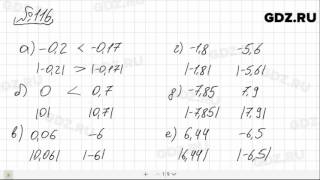 GDZ.RU
№116.
а) -0,2 < -0,17
|-0,2| > |-0,17|
б) 0 < 0,7
|0| |0,7|
в) 0,06 -6
|0,06| |-6|
г) -1,8 -5,6
|-1,8| |-5,6|
д) -7,85 7,9
|-7,85| |7,9|
е) 6,44 -6,5
|6,44| |-6,5|
GDZ.RU